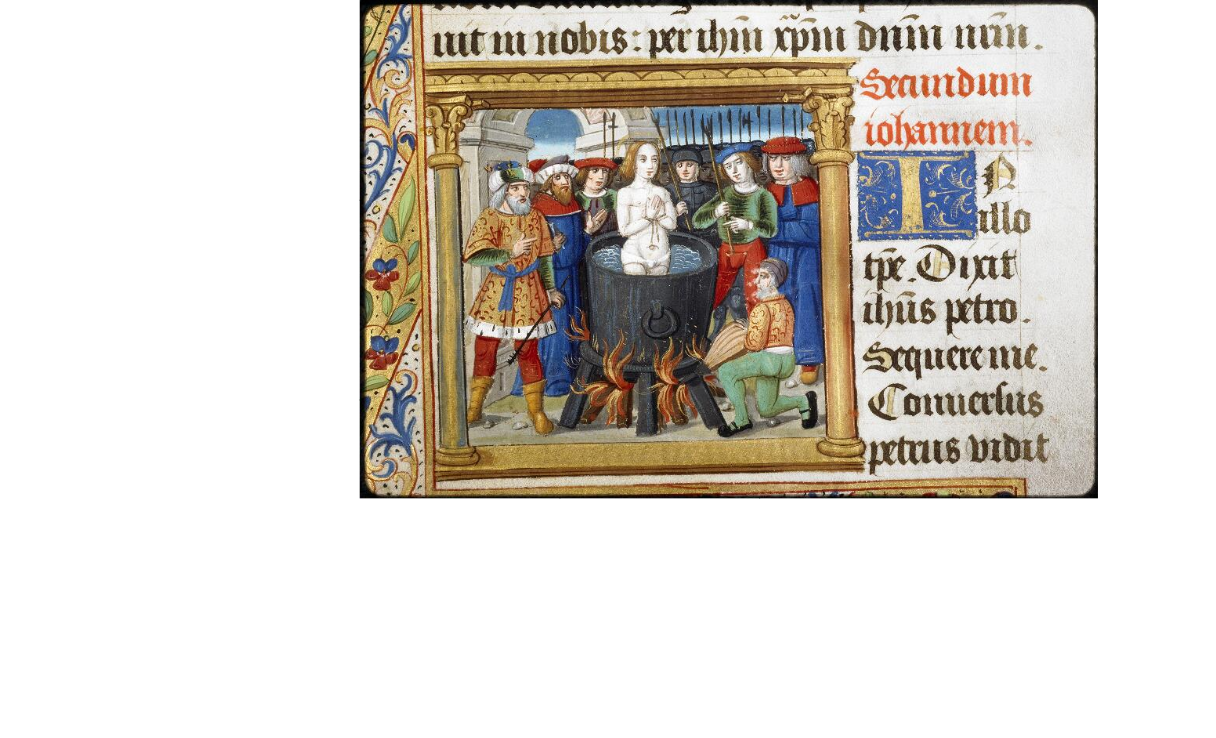 uit in nobis: per ihm̄ xp̄m dnm̄ nrm̄.
Secundum
iohannem.
IN
illo
tp̄e. Dixit
ihūs petro.
Sequere me.
Conuersus
petrus vidit